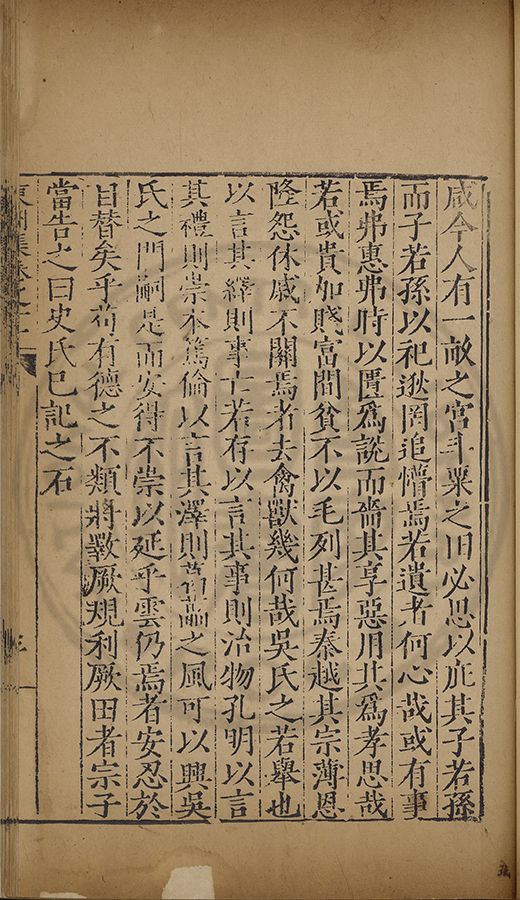 感今人有一畝之宮斗粟之田必思以庇其子若孫
而子若孫以祀逖罔追懵焉若遺者何心哉或有事
焉弗惠弗時以匱爲說而嗇其享惡用其爲孝思哉
若或貴如賤富間貧不以毛列甚焉秦越其宗薄恩
隆怨休戚不關焉者去禽獸幾何哉吳氏之若舉也
以言其繹則事亡若有以言其事則治物孔明以言
其禮則崇本篤倫以言其澤則 之風可以興吳
氏之門嗣是而安得不崇以延乎雲仍焉者安忍於
自替矣乎苟有德之不類將斁厥規利厥田者宗子
當告之曰史氏已記之石
集卷之
三